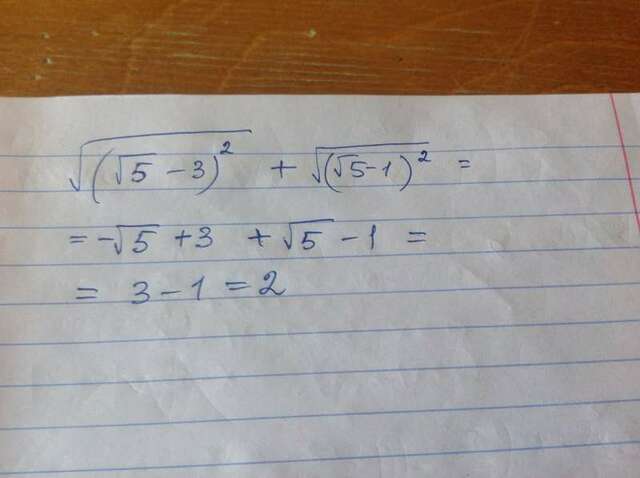 √(√5 - 3)² + √(√5-1)² =
= -√5 + 3 + √5 - 1 =
= 3 - 1 = 2